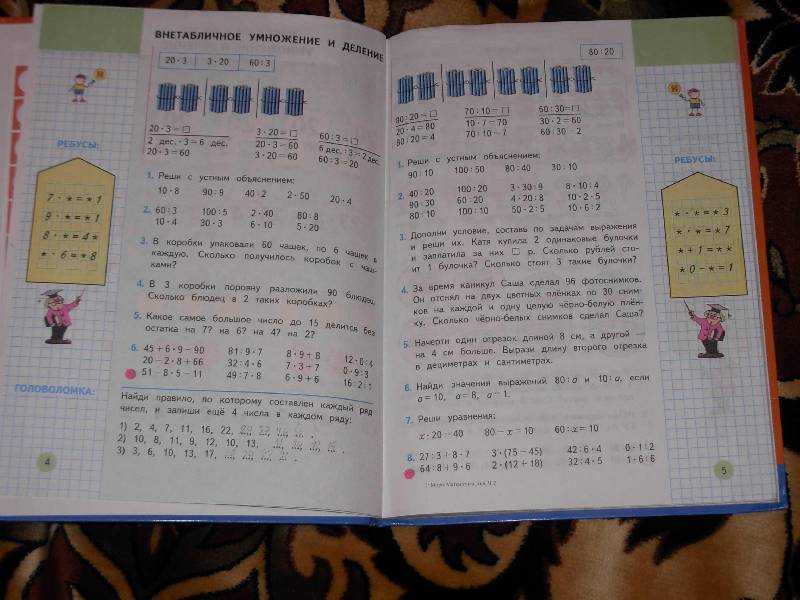 ВНЕТАБЛИЧНОЕ УМНОЖЕНИЕ И ДЕЛЕНИЕ
20·3 3·20 60:3
20·3=□ 3·20=□ 60:3=□
2 дес.·3=6 дес. 20·3=60 6 дес.:3=2 дес.
20·3=60 3·20=60 60:3=20
1. Реши с устным объяснением:
10·8 90:9 40:2 2·50 20·4
2. 60:3 100:5 2·40 80:8
10·4 30·3 6·10 5·20
3. В коробки упаковали 60 чашек, по 6 чашек в
каждую. Сколько получилось коробок с чаш-
ками?
4. В 3 коробки поровну разложили 90 блюдец.
Сколько блюдец в 2 таких коробках?
5. Какое самое большое число до 15 делится без
остатка на 7? на 6? на 4? на 2?
6. 45+6·9−90 81:9·7 8·9+8 12·0:4
20−2·8+66 32:4·6 7·3+7 0·9:3
51−8·5−11 49:7·8 6·9+6 16:2:1
Найди правило, по которому составлен каждый ряд
чисел, и запиши ещё 4 числа в каждом ряду:
1) 2, 4, 7, 11, 16, 22,
2) 10, 8, 11, 9, 12, 10, 13,
3) 3, 6, 10, 13, 17,
РЕБУСЫ:
7·*=*1
9·*=*1
8·*=4*
*·6=*8
ГОЛОВОЛОМКА:
4
80:20
80:20=□ 70:10=□ 60:30=□
20·4=80 10·7=70 30·2=60
80:20=4 70:10=7 60:30=2
1. Реши с устным объяснением:
90:10 100:50 80:40 30:10
2. 40:20 100:20 3·30:9 8·10:4
90:30 60:20 4·20:8 10·2·5
80:10 100:10 50·2:5 10·6:2
3. Дополни условие, составь по задачам выражения
и реши их. Катя купила 2 одинаковые булочки
и заплатила за них □ р. Сколько рублей сто-
ит 1 булочка? Сколько стоят 3 такие булочки?
4. За время каникул Саша сделал 96 фотоснимков.
Он отснял на двух цветных плёнках по 30 сним-
ков на каждой и одну целую чёрно-белую плён-
ку. Сколько чёрно-белых снимков сделал Саша?
5. Начерти один отрезок длиной 8 см, а другой
на 4 см больше. Вырази длину второго отрезка
в дециметрах и сантиметрах.
6. Найди значения выражений 80:а и 10:а, если
а=10, а=8, а=1.
7. Реши уравнения:
х·20=40 80−х=10 60:х=10
8. 27:3+8·7 3·(75−45) 42:6·4 0·1:2
64:8+9·6 2·(12+18) 32:4·5 1·6:6
РЕБУСЫ:
*·*=*3
*·*=*7
*+1=**
*0−*=*1
5